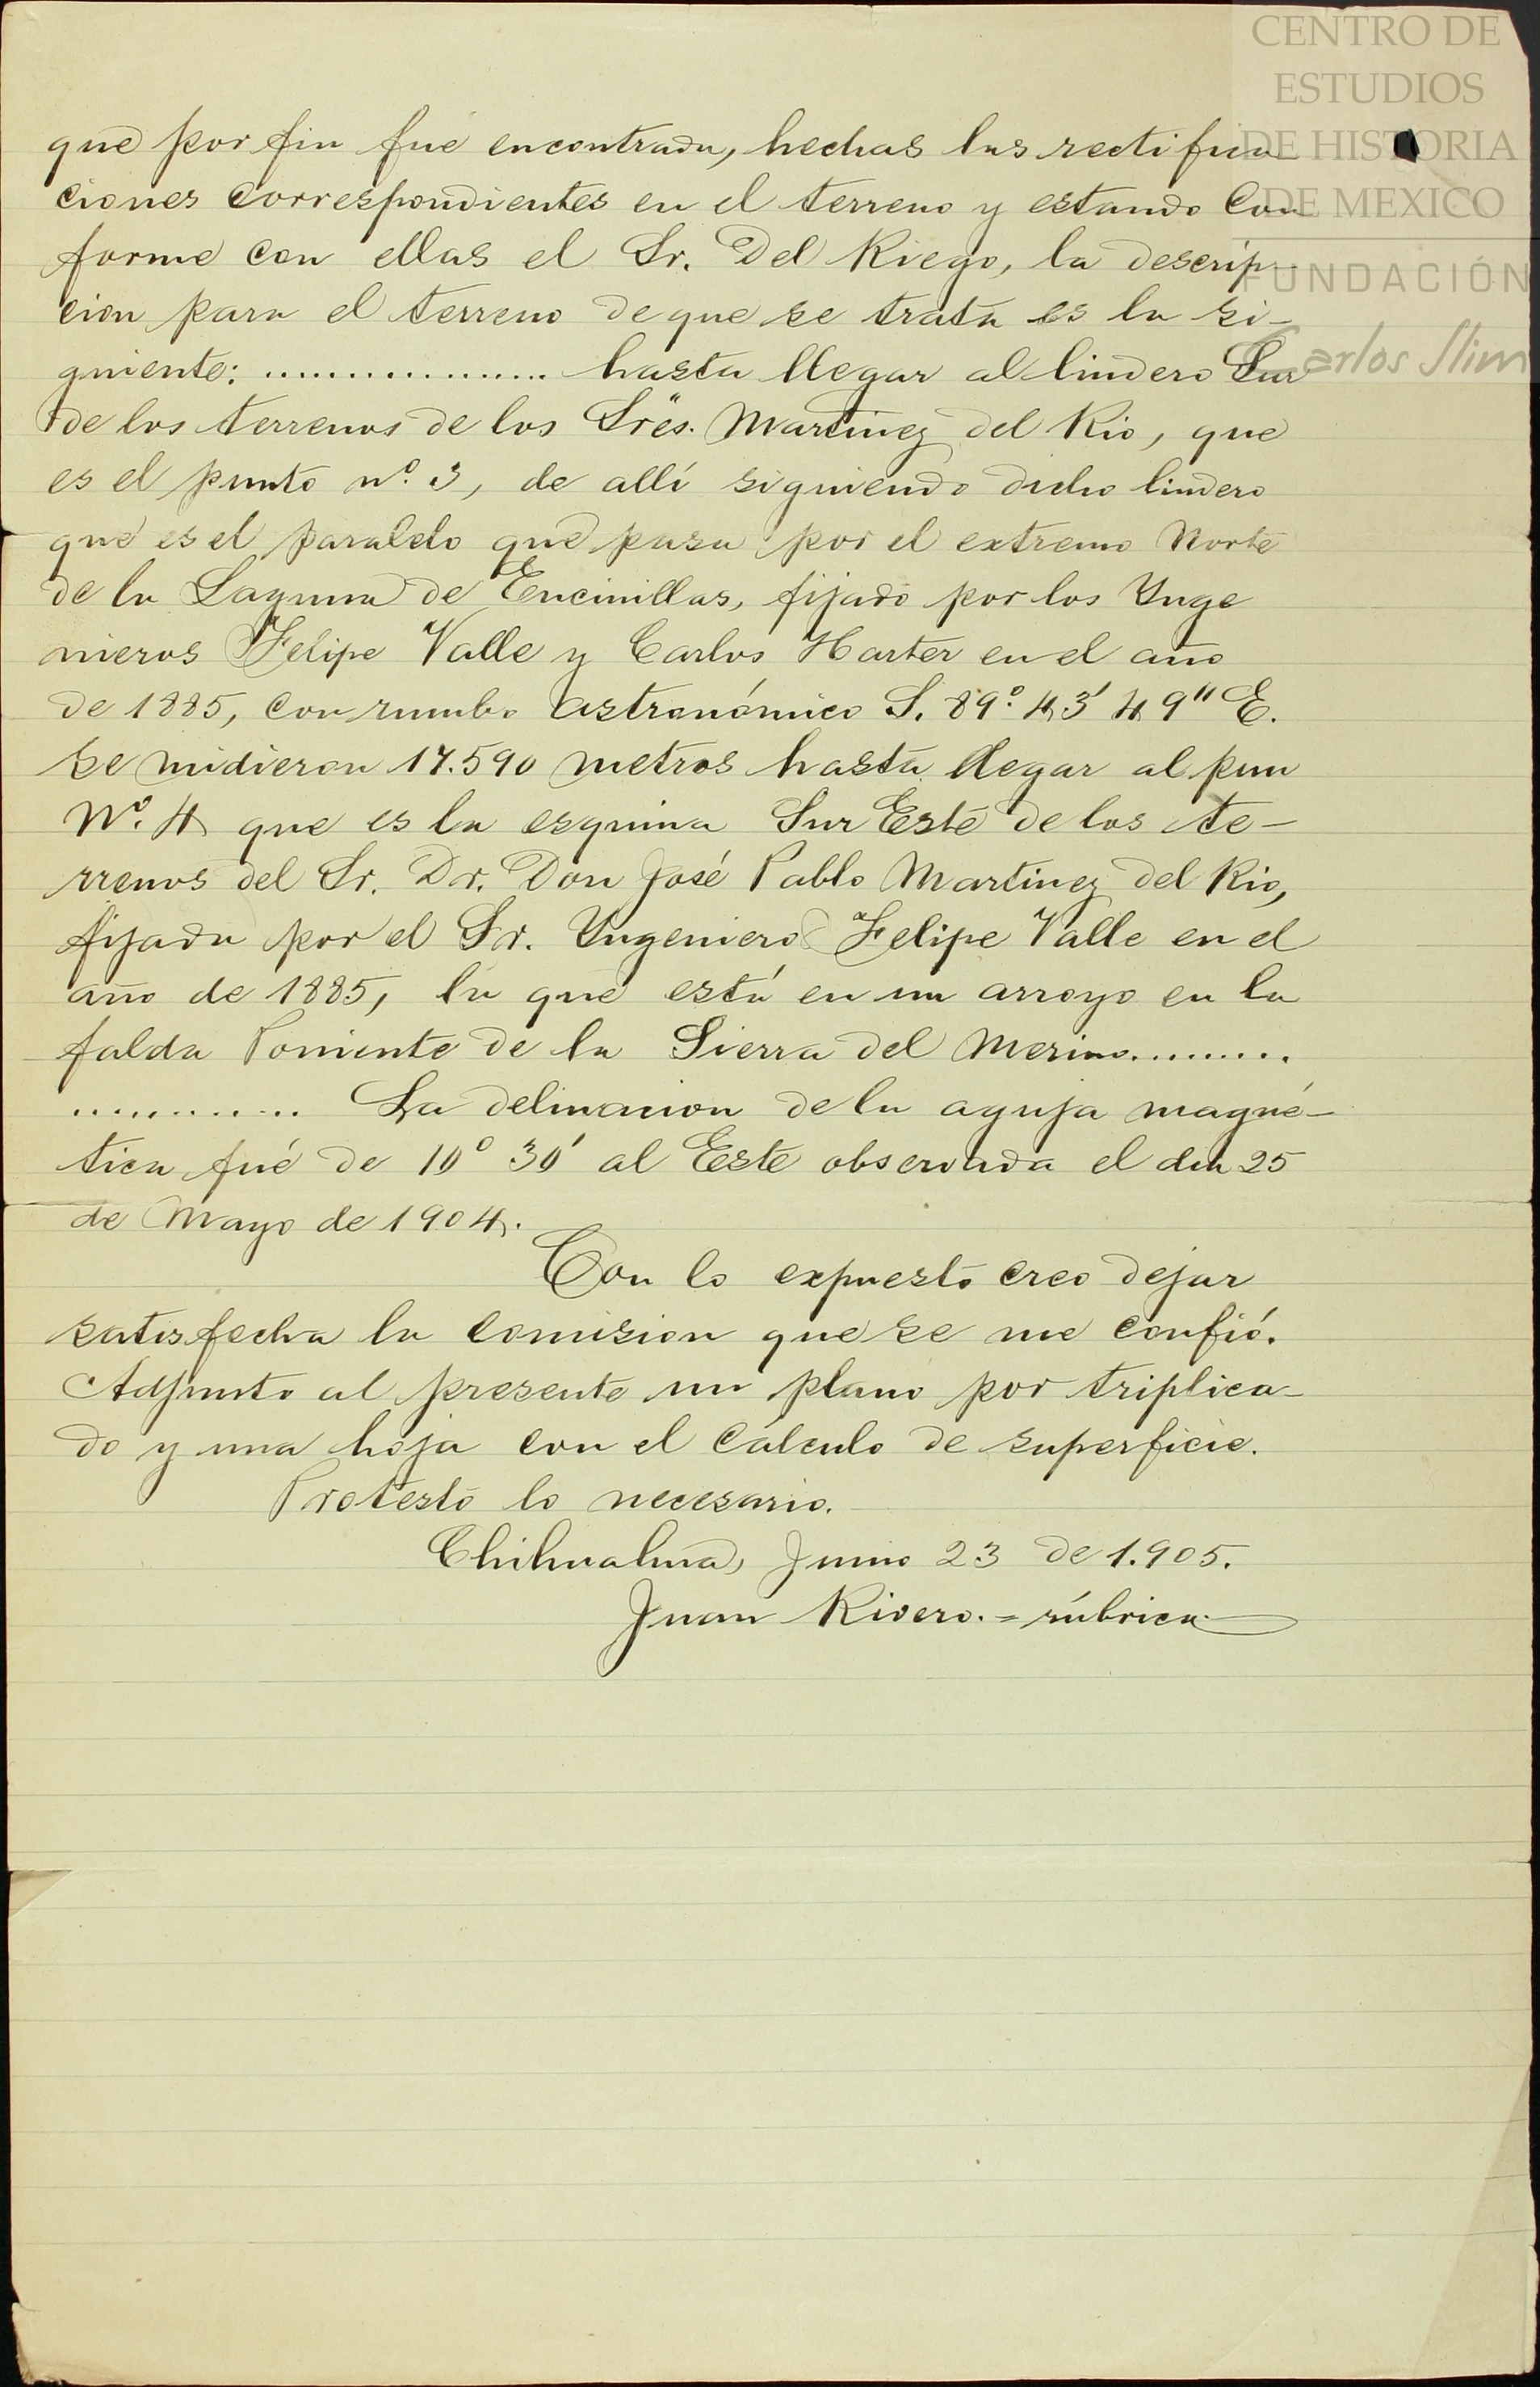 CENTRO DE
ESTUDIOS
DE HISTORIA
DE MEXICO
FUNDACIÓN
Carlos Slim
que por fin fué encontrada, hechas las rectifica
ciones correspondientes en el terreno y estando con
forme con ellas el Sr. Del Riego, la descrip-
cion para el terreno de que se trata es la si-
guiente: ................. hasta llegar al lindero Sur
de los terrenos de los Sres. Martinez del Rio, que
es el punto nº. 3, de allí siguiendo dicho lindero
que es el paralelo que pasa por el extremo Norte
de la Laguna de Encinillas, fijado por los Inge
nieros Felipe Valle y Carlos Harter en el año
de 1885, con rumbo astronómico S. 89º. 43' 49" E.
se midieron 17.590 metros hasta llegar al pun
Nº. 4 que es la esquina Sur Este de los te-
rrenos del Sr. Dr. Don José Pablo Martinez del Rio,
fijada por el Sr. Ingeniero Felipe Valle en el
año de 1885, la que está en un arroyo en la
falda Poniente de la Sierra del Merino.........
............ La delinacion de la aguja magné-
tica fué de 10º 30' al Este observada el dia 25
de Mayo de 1904.
Con lo expuesto creo dejar
satisfecha la comision que se me confió.
Adjunto al presente un plano por triplica-
do y una hoja con el cálculo de superficie.
Protesto lo necesario.
Chihuahua, Junio 23 de 1.905.
Juan Rivero. = rúbrica.